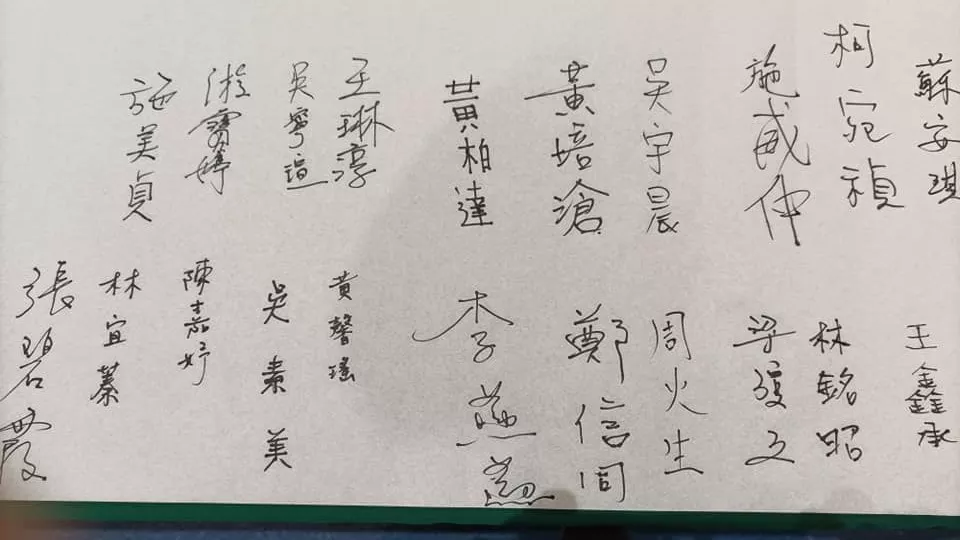 蘇安琪
柯宛禎
施威仲
吳宇晨
黃培滄
黃柏達
王琳淳
吳寧瑄
游寶婷
施美貞
王鑫承
林銘昭
周火生
鄭信周
李燕燕
黃馨瑤
吳素美
陳嘉妤
林宜蓁
張碧霞